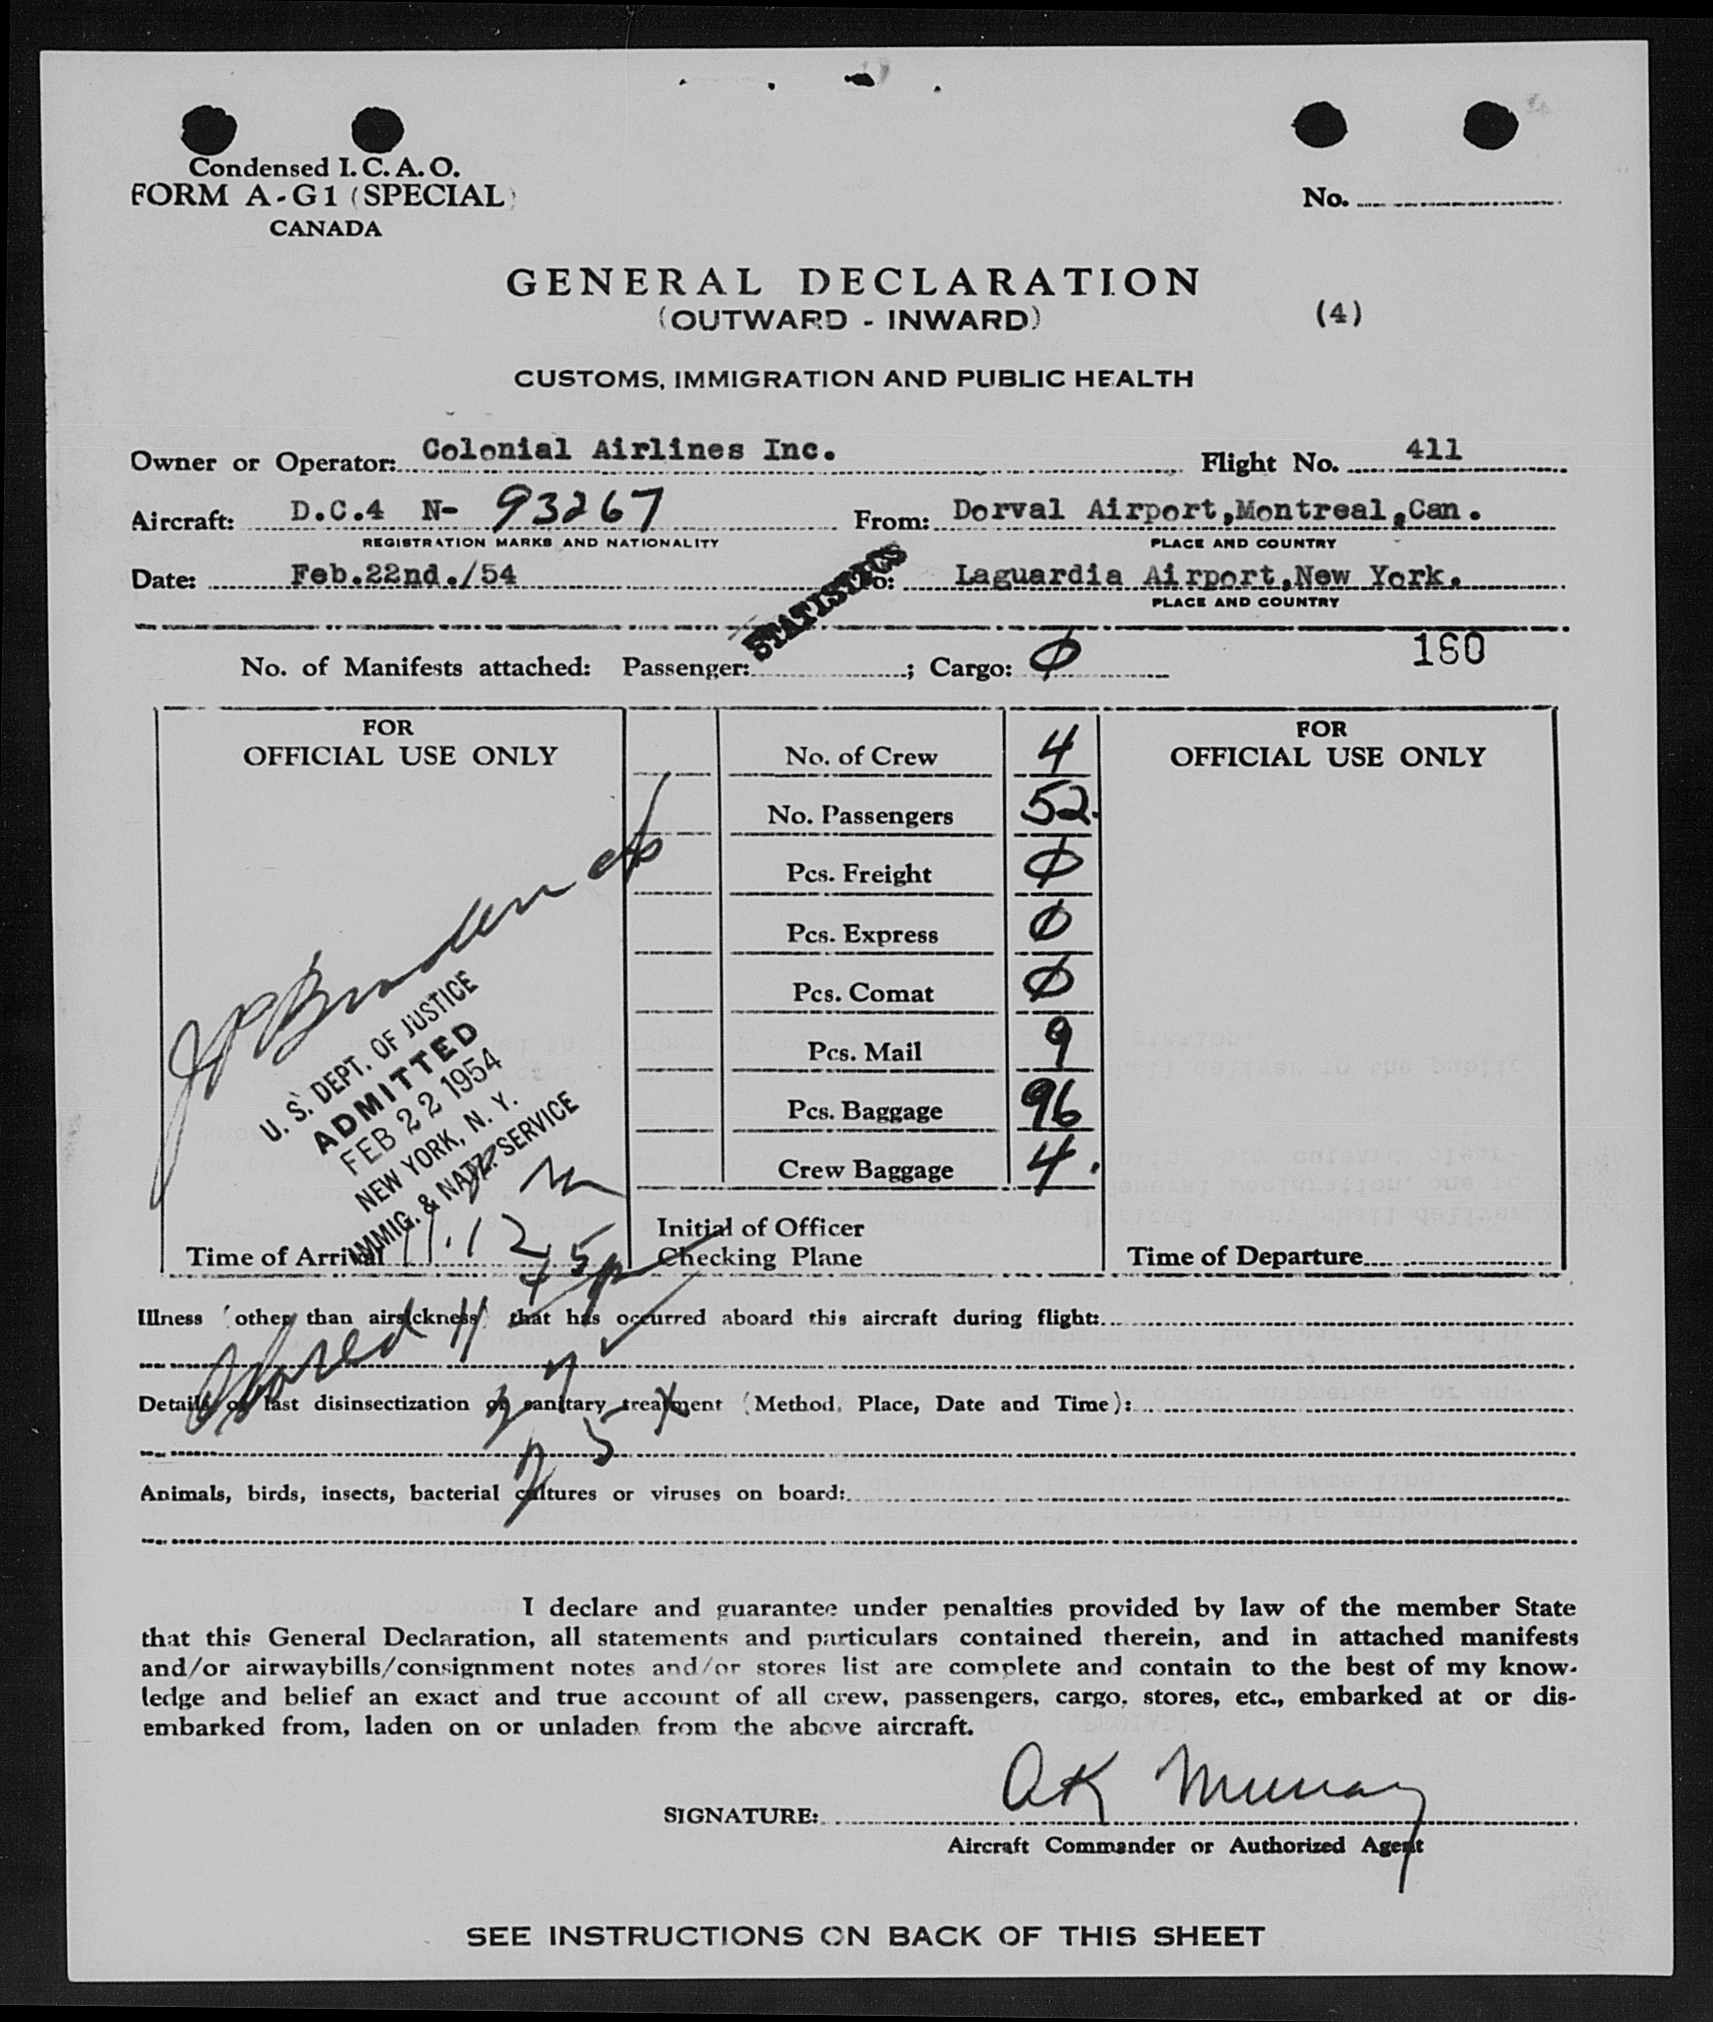 Condensed I. C. A. O.
FORM A-G1 (SPECIAL)
CANADA
No.
GENERAL DECLARATION
(OUTWARD - INWARD)
(4)
CUSTOMS, IMMIGRATION AND PUBLIC HEALTH
Owner or Operator: Colonial Airlines Inc. Flight No. 411
Aircraft: D.C.4 N- 93267 From: Dorval Airport,Montreal,Can.
REGISTRATION MARKS AND NATIONALITY PLACE AND COUNTRY
Date: Feb.22nd./54 To: Laguardia Airport,New York.
PLACE AND COUNTRY
STATISTICS
No. of Manifests attached: Passenger: ; Cargo: Ø 160
FOR
OFFICIAL USE ONLY
No. of Crew 4
No. Passengers 52.
Pcs. Freight Ø
Pcs. Express Ø
Pcs. Comat Ø
Pcs. Mail 9
Pcs. Baggage 96
Crew Baggage 4.
FOR
OFFICIAL USE ONLY
U. S. DEPT. OF JUSTICE
ADMITTED
FEB 22 1954
NEW YORK, N. Y.
IMMIG. & NATZ. SERVICE
Time of Arrival 11.12
Initial of Officer
Checking Plane
Time of Departure
Illness (other than airsickness) that has occurred aboard this aircraft during flight:
Details of last disinsectization or sanitary treatment (Method, Place, Date and Time):
Animals, birds, insects, bacterial cultures or viruses on board:
I declare and guarantee under penalties provided by law of the member State
that this General Declaration, all statements and particulars contained therein, and in attached manifests
and/or airwaybills/consignment notes and/or stores list are complete and contain to the best of my know-
ledge and belief an exact and true account of all crew, passengers, cargo, stores, etc., embarked at or dis-
embarked from, laden on or unladen from the above aircraft.
SIGNATURE: AK Murray
Aircraft Commander or Authorized Agent
SEE INSTRUCTIONS ON BACK OF THIS SHEET